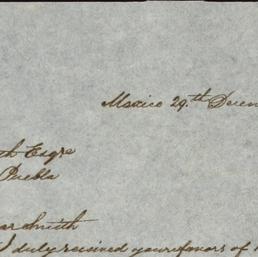 Mexico 29.th Decem
th Esqre
Puebla
ar Smith
I duly received your favors of